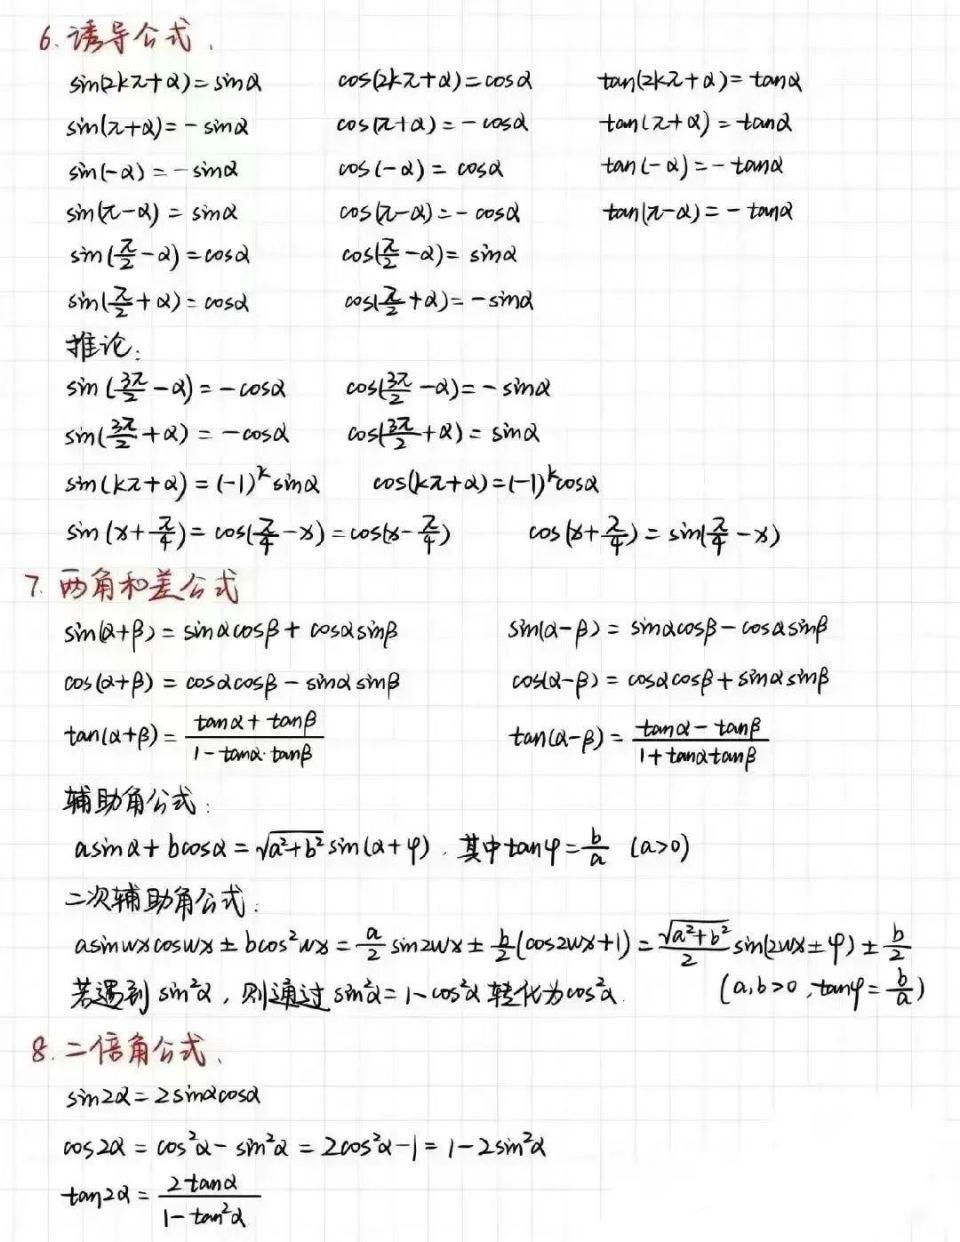 6. 诱导公式.
sin(2kπ+α)=sinα cos(2kπ+α)=cosα tan(2kπ+α)=tanα
sin(π+α)=-sinα cos(π+α)=-cosα tan(π+α)=tanα
sin(-α)=-sinα cos(-α)=cosα tan(-α)=-tanα
sin(π-α)=sinα cos(π-α)=-cosα tan(π-α)=-tanα
sin(π/2-α)=cosα cos(π/2-α)=sinα
sin(π/2+α)=cosα cos(π/2+α)=-sinα
推论:
sin(3π/2-α)=-cosα cos(3π/2-α)=-sinα
sin(3π/2+α)=-cosα cos(3π/2+α)=sinα
sin(kπ+α)=(-1)^k sinα cos(kπ+α)=(-1)^k cosα
sin(x+π/4)=cos(π/4-x)=cos(x-π/4) cos(x+π/4)=sin(π/4-x)
7. 两角和差公式
sin(α+β)=sinαcosβ+cosαsinβ sin(α-β)=sinαcosβ-cosαsinβ
cos(α+β)=cosαcosβ-sinαsinβ cos(α-β)=cosαcosβ+sinαsinβ
tan(α+β)=(tanα+tanβ)/(1-tanα·tanβ) tan(α-β)=(tanα-tanβ)/(1+tanαtanβ)
辅助角公式:
asinα+bcosα=√(a²+b²)sin(α+φ), 其中tanφ=b/a (a>0)
二次辅助角公式:
asinωxcosωx±bcos²ωx=a/2 sin2ωx±b/2(cos2ωx+1)=√(a²+b²)/2 sin(2ωx±φ)±b/2
若遇到sin²α, 则通过sin²α=1-cos²α转化为cos²α. (a,b>0, tanφ=b/a)
8. 二倍角公式.
sin2α=2sinαcosα
cos2α=cos²α-sin²α=2cos²α-1=1-2sin²α
tan2α=2tanα/(1-tan²α)